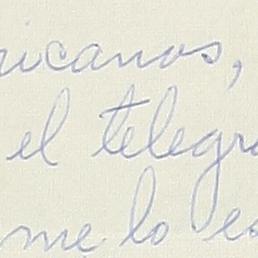 ricanos,
el telegra
me lo es